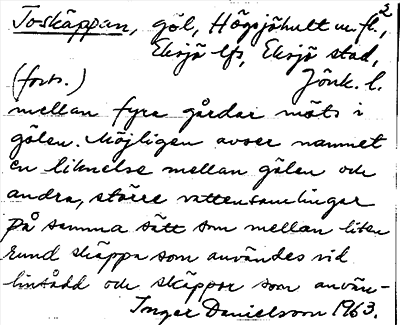 Toskäppan, göl, Högsjöhult m.fl.,
2
Eksjö lfs, Eksjö stad,
(forts.) Jönk. l.
mellan fyra gårdar möts i
gölen. Möjligen avser namnet
en liknelse mellan gölen och
andra, större vattensamlingar
på samma sätt som mellan liten
rund skäppa som användes vid
linsådd och skäppor som använ-
Inger Danielsson 1963.